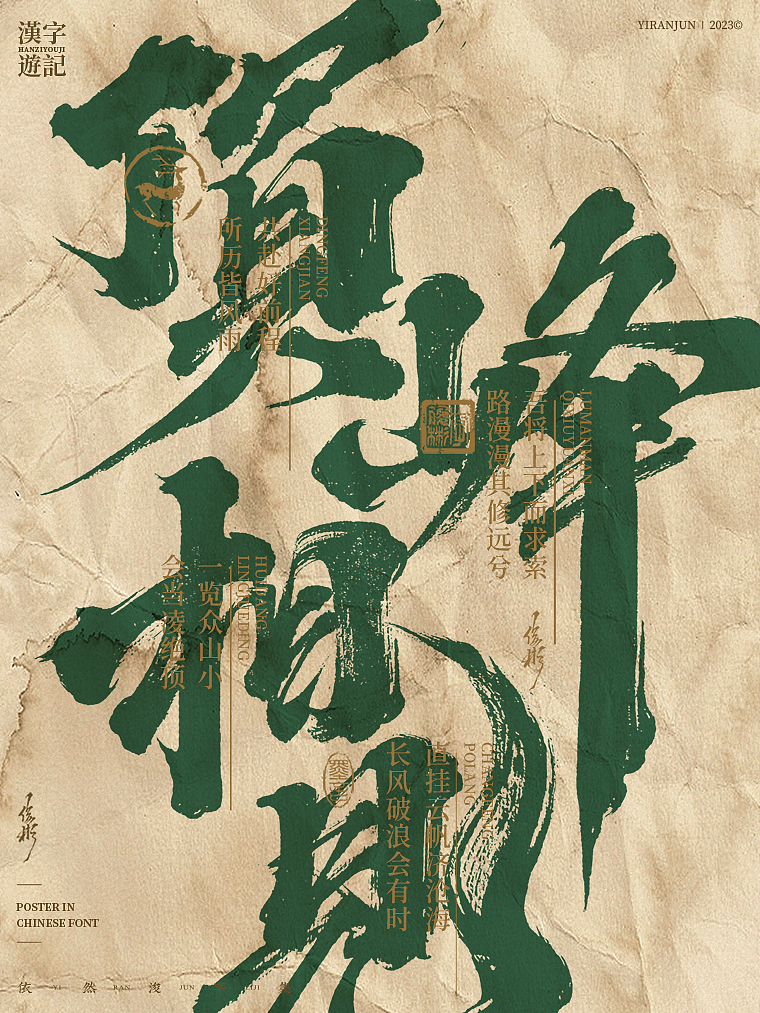 漢字
HANZIYOUJI
遊記
YIRANJUN | 2023©
顶峰相见
DINGFENG
XIANGJIAN
共赴好前程
所历皆风雨
LUMANMAN
路漫漫其修远兮
吾将上下而求索
会当凌绝顶
一览众山小
长风破浪会有时
直挂云帆济沧海
POLANG
POSTER IN
CHINESE FONT
依 YI 然 RAN 浚 JUN